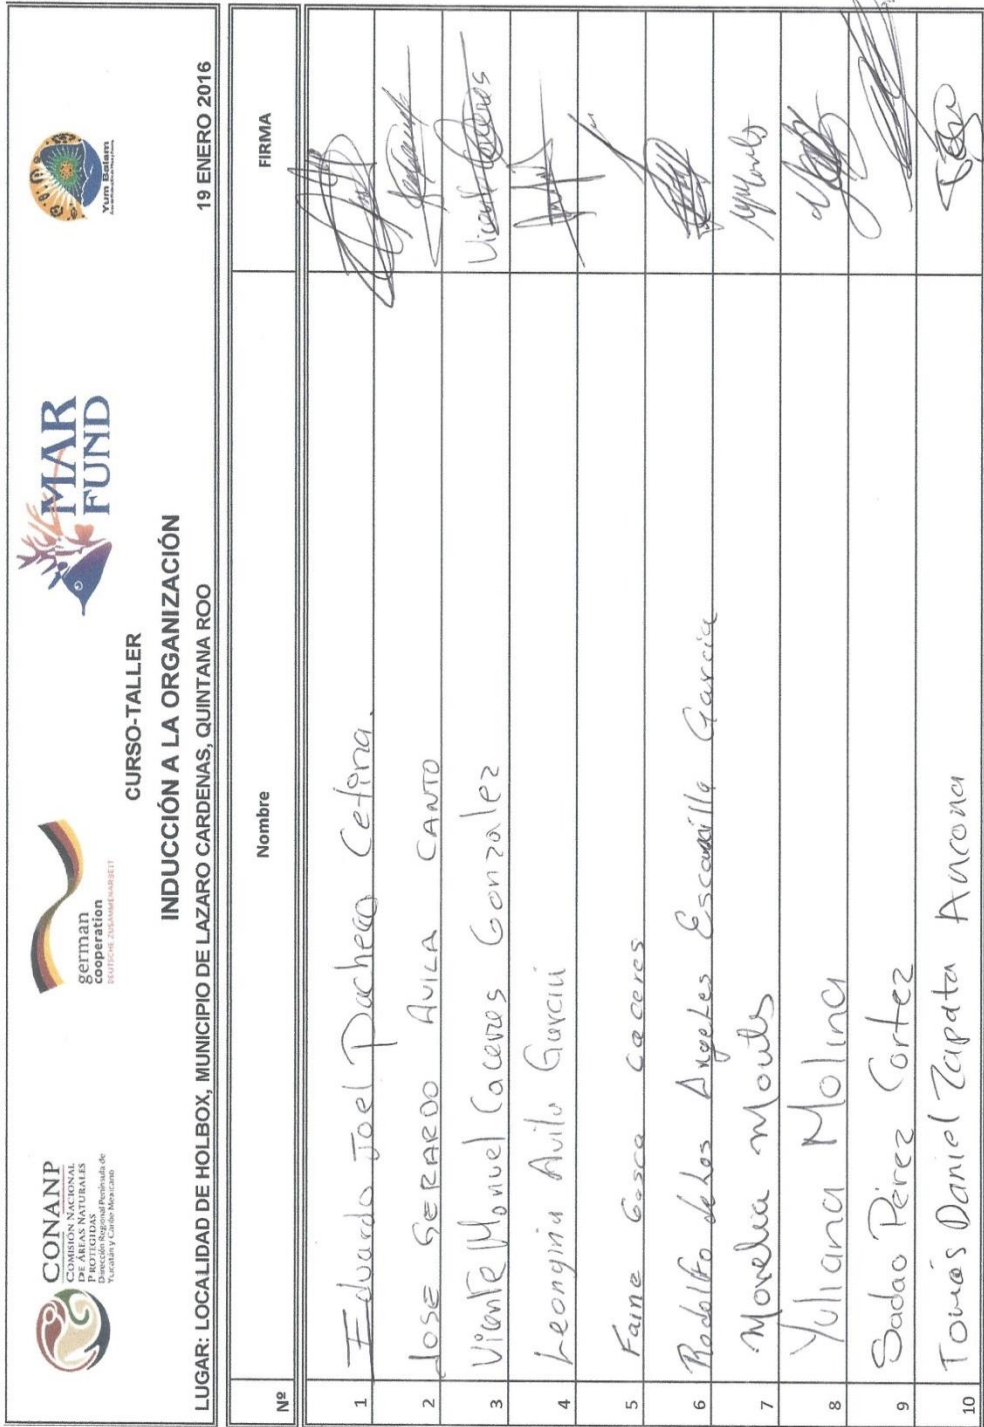 CONANP
COMISIÓN NACIONAL
DE ÁREAS NATURALES
PROTEGIDAS
Dirección Regional Península de
Yucatán y Caribe Mexicano
german
cooperation
DEUTSCHE ZUSAMMENARBEIT
MAR
FUND
Yum Balam
CURSO-TALLER
INDUCCIÓN A LA ORGANIZACIÓN
LUGAR: LOCALIDAD DE HOLBOX, MUNICIPIO DE LAZARO CARDENAS, QUINTANA ROO 19 ENERO 2016
Nº Nombre FIRMA
1 Eduardo Joel Pacheco Cetina.
2 JOSE GERARDO AVILA CANTO
3 Vicente Manuel Caceres Gonzalez Vicente Caceres
4 Leongina Avila Garcia
5 Gasca Caceres
6 Rodolfo de Los Angeles Escamilla Garcia
7 Morelia
8 Yuliana Molina
9 Sadao Pérez Cortez
10 Tomás Daniel Zapata Ancona